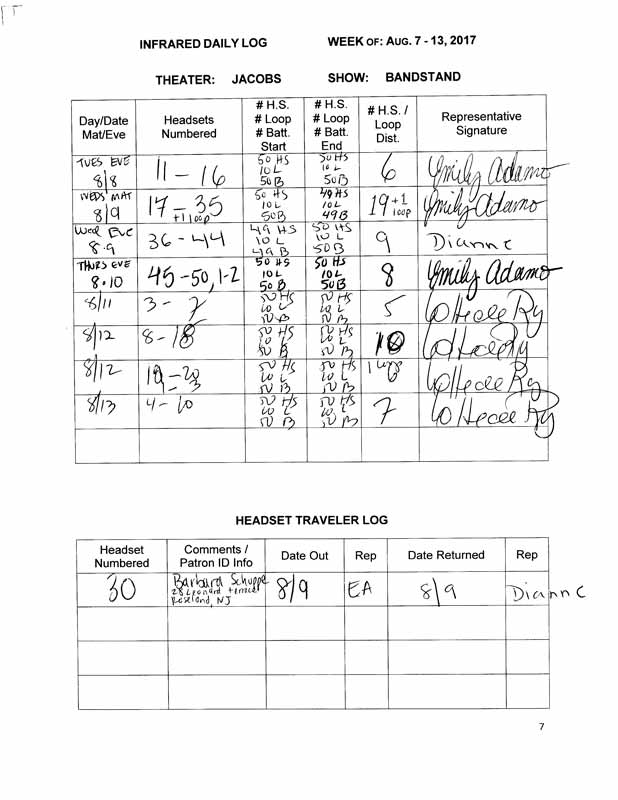 INFRARED DAILY LOG WEEK OF: AUG. 7 - 13, 2017
THEATER: JACOBS SHOW: BANDSTAND
Day/Date Mat/Eve Headsets Numbered # H.S. # Loop # Batt. Start # H.S. # Loop # Batt. End # H.S. / Loop Dist. Representative Signature
TUES EVE 8/8 11 - 16 50 HS 10 L 50B 50 HS 10 L 50B 6 Emily Adamo
WEDS MAT 8/9 17 - 35 +1 loop 50 HS 10 L 50B 49 HS 10 L 49 B 19 +1 loop Emily Adamo
Wed Eve 8.9 36 - 44 49 HS 10 L 49 B 50 HS 10 L 50 B 9 Dianne C
THURS EVE 8.10 45 - 50, 1-2 50 HS 10 L 50 B 50 HS 10 L 50B 8 Emily Adamo
8/11 3 - 7 50 HS 10 L 50 B 50 HS 10 L 50 B 5
8/12 8 - 18 50 HS 10 L 50 B 50 HS 10 L 50 B 10
8/12 19 - 50 HS 10 L 50 B 50 HS 10 L 50 B
8/13 4 - 10 50 HS 10 L 50 B 50 HS 10 L 50 B 7
HEADSET TRAVELER LOG
Headset Numbered Comments / Patron ID Info Date Out Rep Date Returned Rep
30 Barbara Schuppe 28 Leonard terrace Roseland, NJ 8/9 EA 8/9 Dianne C
7